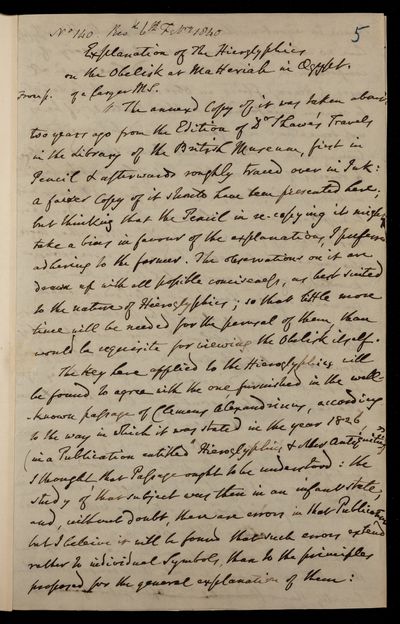 No 140 Recd 6th Febry 1840
5
Explanation of the Hieroglyphics
on the Obelisk at Matteriah in Egypt.
from p. of a larger MS.
The annexed Copy of it was taken about
two years ago from the Edition of Dr Shaw's Travels
in the Library of the British Museum, first in
Pencil & afterwards roughly traced over in Ink:
a fairer Copy of it should have been presented here;
but thinking that the Pencil in re-copying it might
take a bias in favour of the explanations, I preferred
adhering to the former. The observations on it are
drawn up with all possible conciseness, as best suited
to the nature of Hieroglyphics; so that little more
time will be needed for the perusal of them, than
would be requisite for viewing the Obelisk itself.
The Key here applied to the Hieroglyphics will
be found to agree with the one furnished in the well-
-known passage of Clemens Alexandrinus, according
to the way in which it was stated in the year 1826,
(in a Publication entitled "Hieroglyphics & other Antiquities")
I thought that Passage ought to be understood: the
study of that subject was then in an infant state,
and, without doubt, there are errors in that Publication
but I beleive it will be found that such errors extend
rather to individual Symbols, than to the principles
proposed for the general explanation of them: